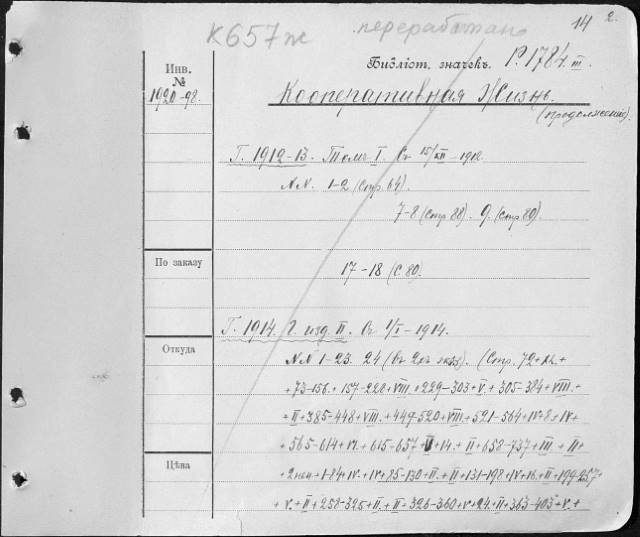 К657ж переработано 14 2.
Библіот. значекъ. Р. 1784. III.
Инв.
№
1920-98.
Кооперативная Жизнь.
(продолженіе)
Г. 1912-13. Томъ I. Съ 15/XII - 1912.
NN. 1-2 (Стр. 64).
7-8 (Стр 88). 9. (Стр 80).
По заказу
17-18 (С. 80).
Г. 1914. Г. изд. II. Съ 1/I - 1914.
Откуда
NN 1-23. 24 (въ 2хъ экз.). (Стр. 72+
+73-156.+157-228+VIII.+229-303+V.+305-384+VIII.+
+II+385-448+VIII.+449-520+VIII.+521-564+IV+8+IV+
+565-614+VI.+615-657+II+14.+II+658-737+III.+II+
Цѣна
+2нен+1-84+IV.+IV+85-130+II.+II+131-198+IV+16.+II+199-257+
+V.+II+258-325+II.+II+326-360+V+24.+II+363-403+V.+